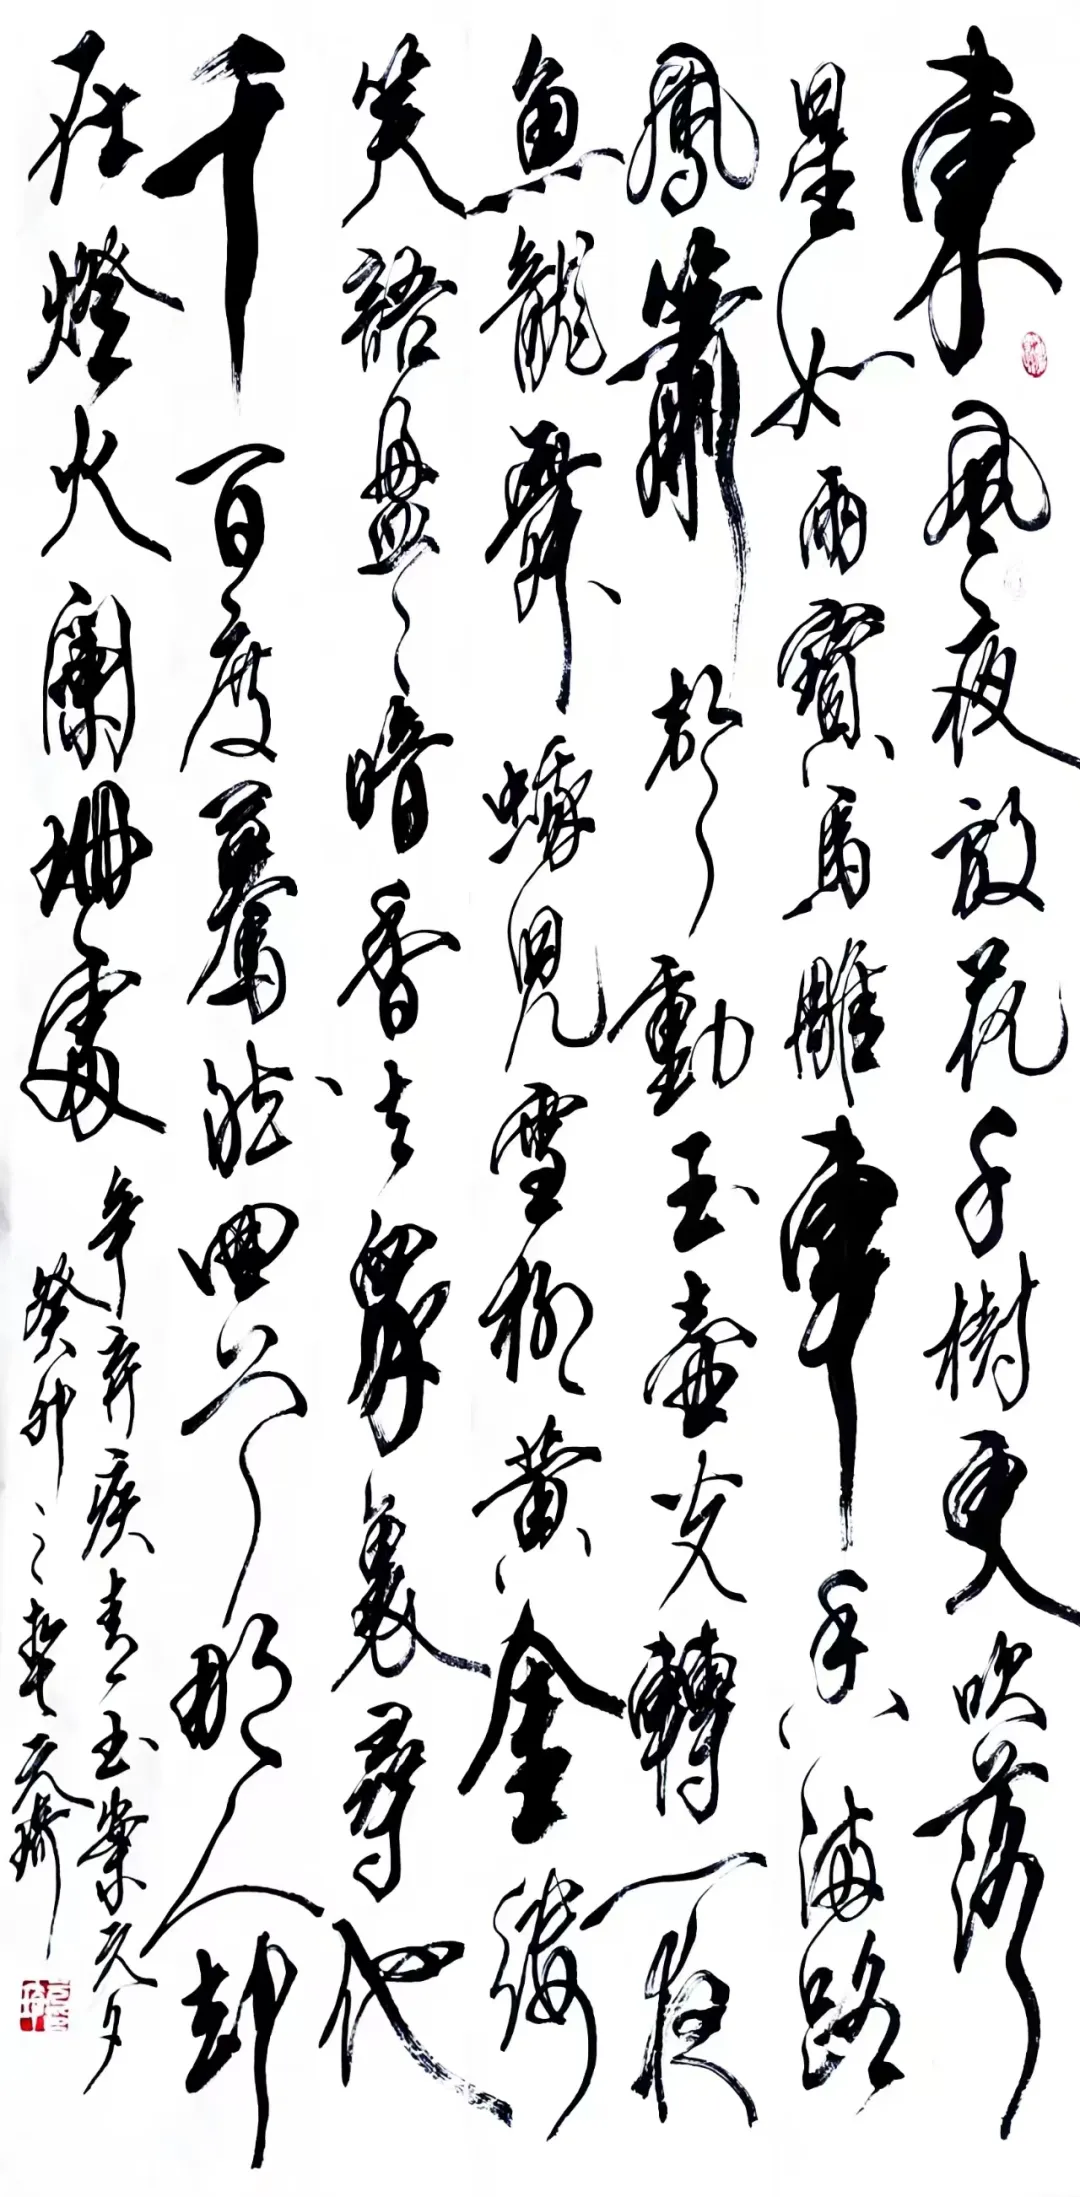 東風夜放花千樹更吹落
星如雨寶馬雕車香滿路
鳳簫聲動玉壺光轉一夜
魚龍舞蛾兒雪柳黃金縷
笑語盈〻暗香去眾裏尋他
千百度驀然回首那人卻
在燈火闌珊處
辛弃疾青玉案元夕
癸卯之